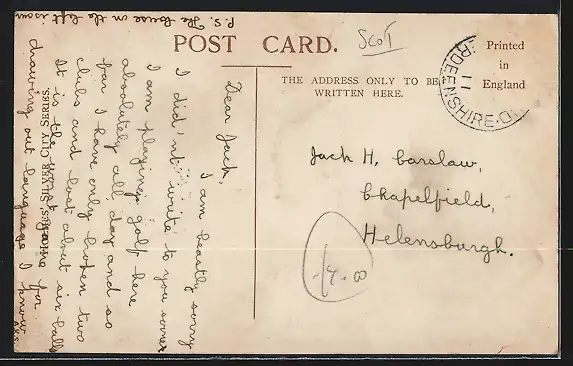 POST CARD.
Scot
Printed
in
England
THE ADDRESS ONLY TO BE
WRITTEN HERE.
RDEENSHIRE
11
Dear Jack,
I am beastly sorry
I did'nt write to you sooner
I am playing golf here
absolutely all day and so
far I have only broken two
clubs and lost about six balls
It is the game for
drawing out language I know
P.S. The house on the left is
SILVER CITY SERIES.
Jack H. Carslaw,
Chapelfield,
Helensburgh.